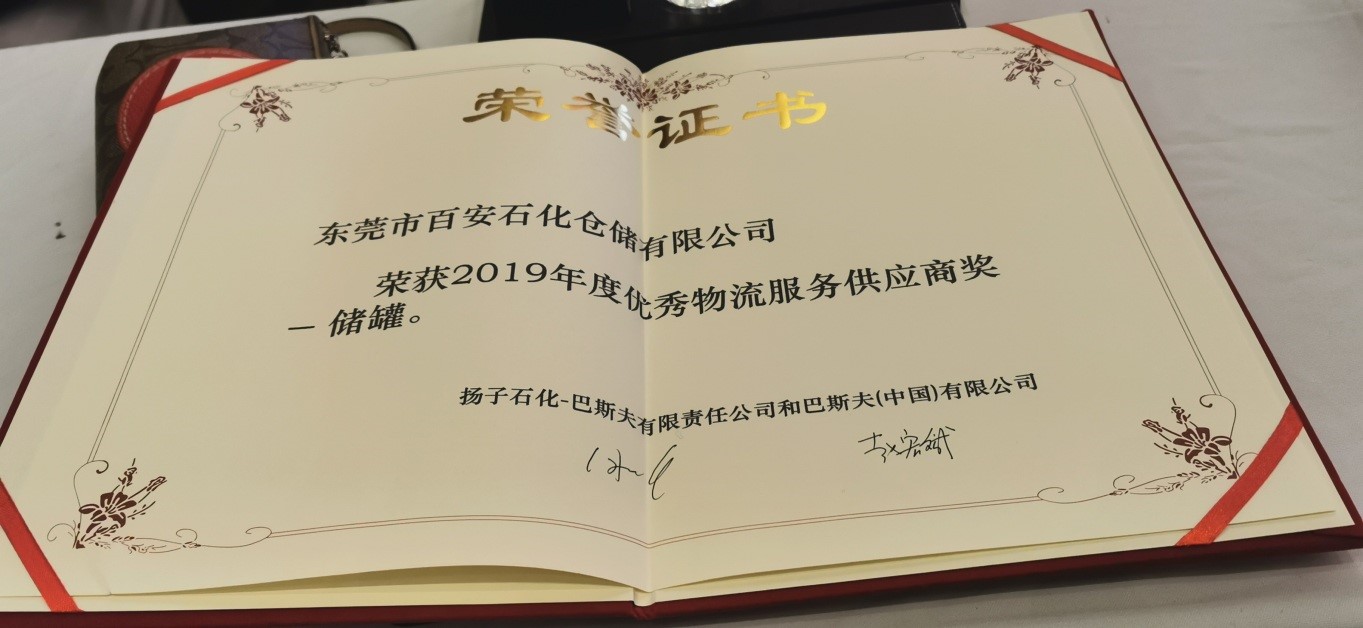 荣誉证书
东莞市百安石化仓储有限公司
荣获2019年度优秀物流服务供应商奖
– 储罐。
扬子石化-巴斯夫有限责任公司和巴斯夫(中国)有限公司